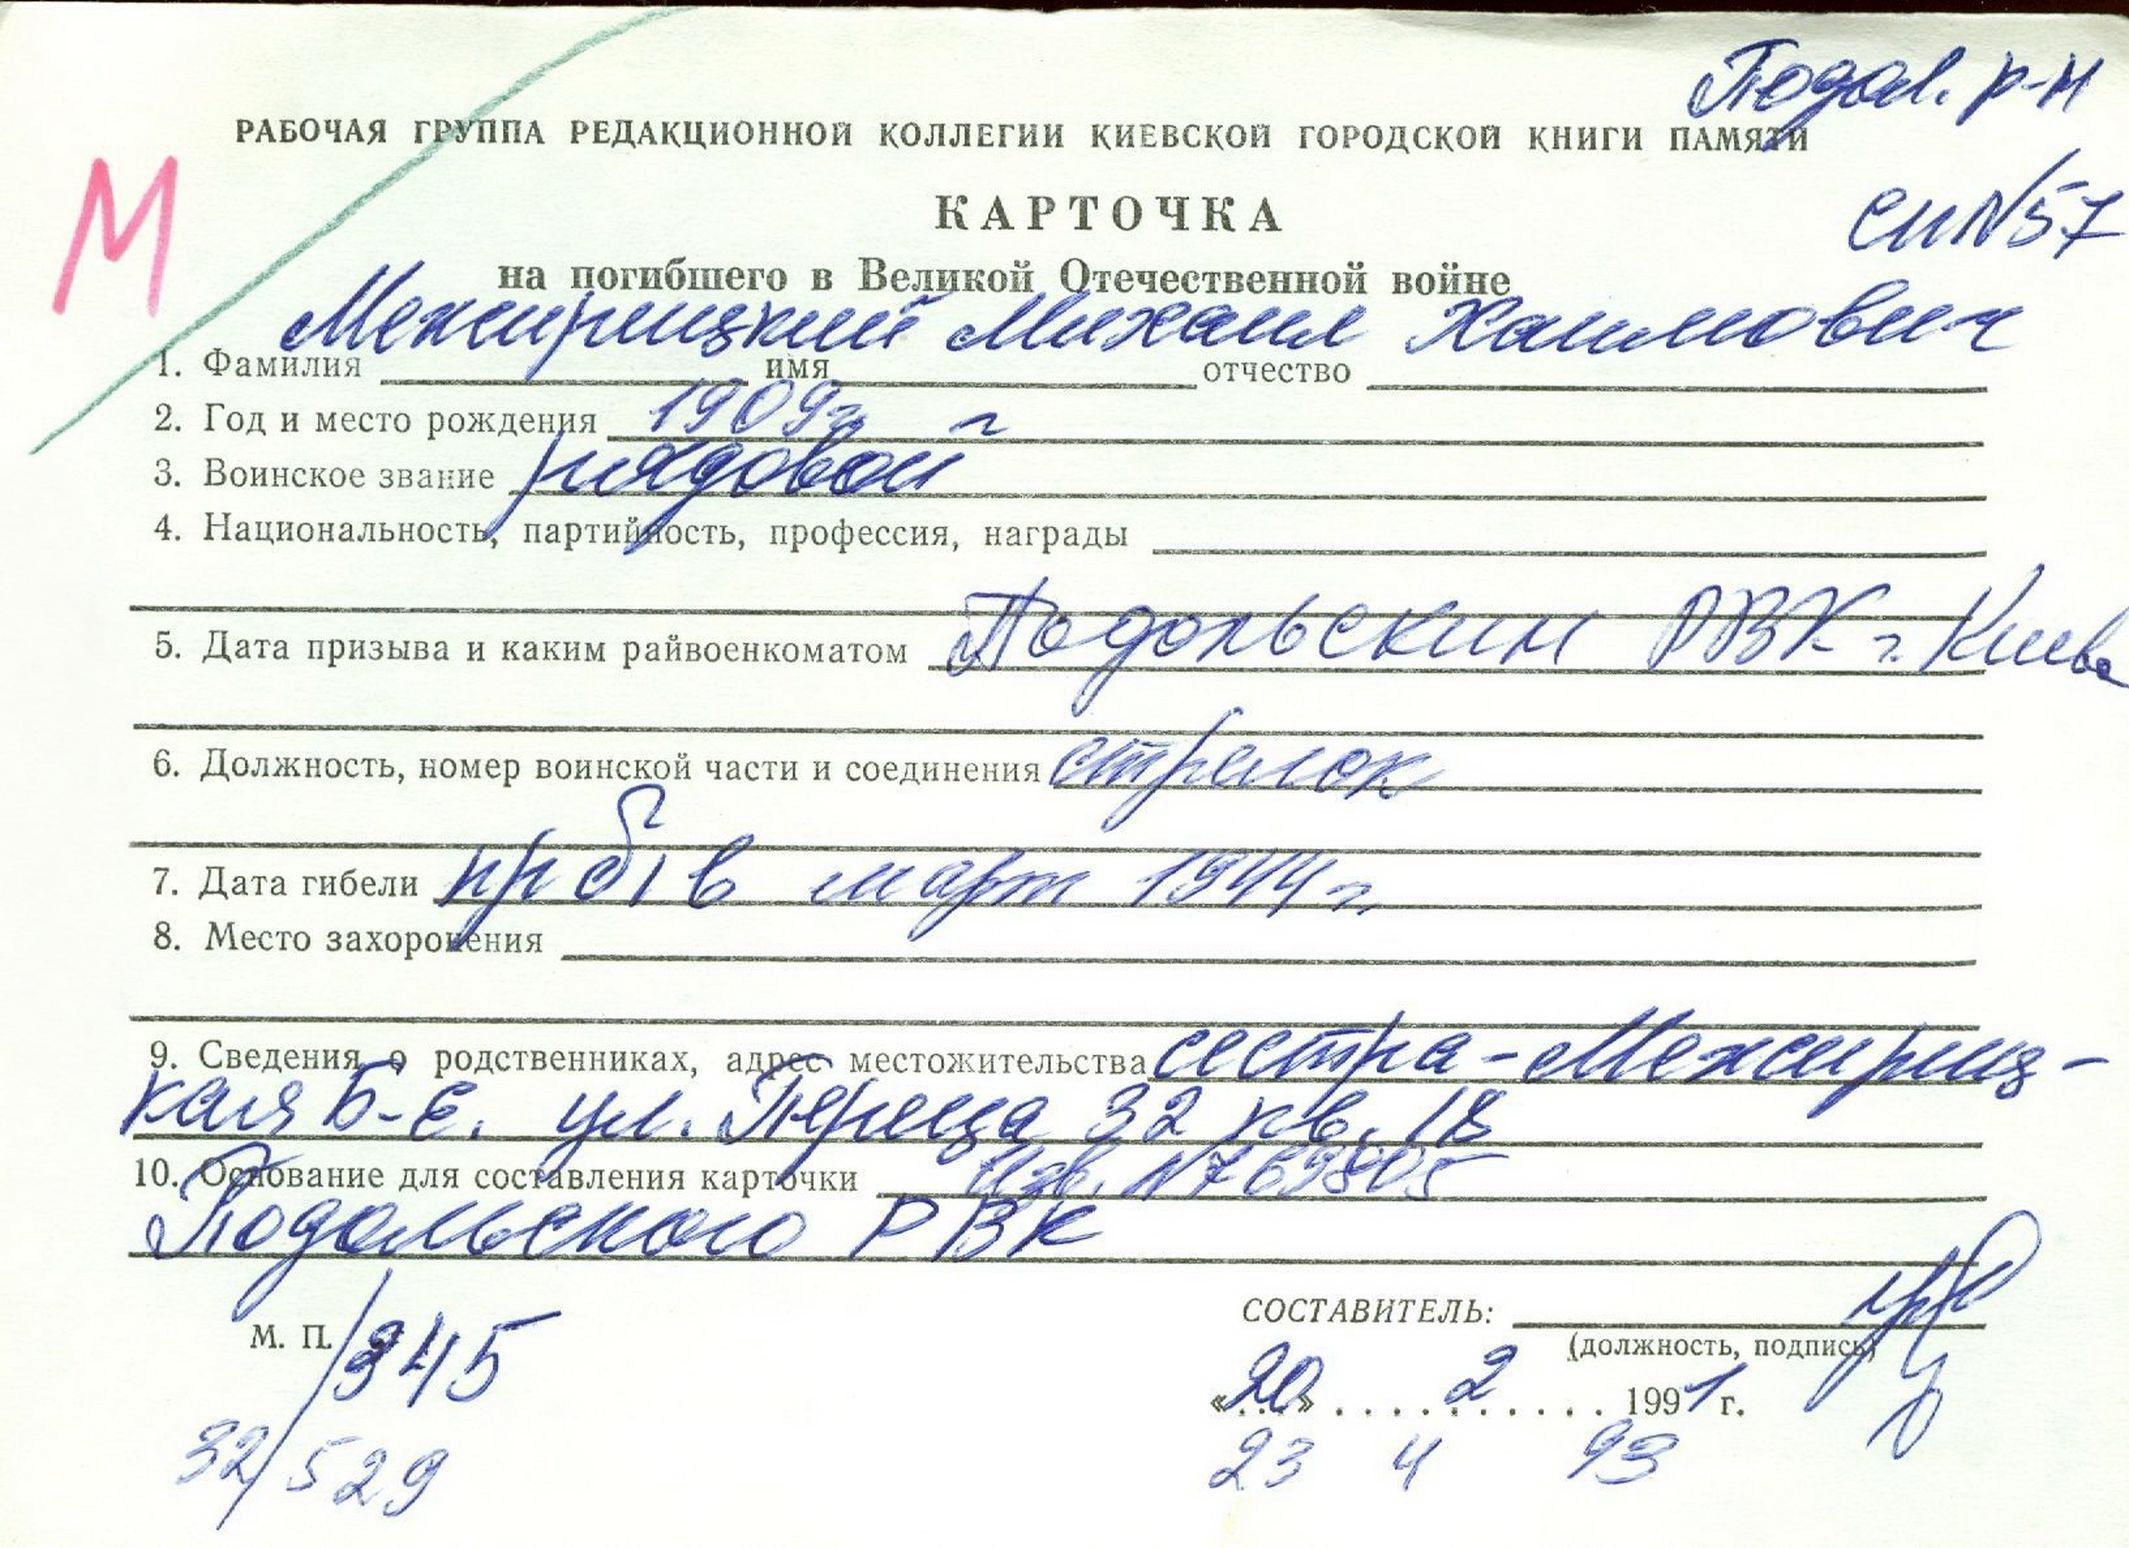 Подол. р-н
РАБОЧАЯ ГРУППА РЕДАКЦИОННОЙ КОЛЛЕГИИ КИЕВСКОЙ ГОРОДСКОЙ КНИГИ ПАМЯТИ
М
КАРТОЧКА
сп N 57
на погибшего в Великой Отечественной войне
1. Фамилия Межирицкий имя Михаил отчество Хаимович
2. Год и место рождения 1909г.
3. Воинское звание рядовой
4. Национальность, партийность, профессия, награды
5. Дата призыва и каким райвоенкоматом Подольским РВК г. Киева
6. Должность, номер воинской части и соединения стрелок
7. Дата гибели пр б/в март 1944 г.
8. Место захоронения
9. Сведения о родственниках, адрес местожительства сестра - Межириц-
кая Б-Е. ул. Переца 32 кв. 18
10. Основание для составления карточки Изв. N 769805
Подольского РВК
СОСТАВИТЕЛЬ:
М. П. /345
(должность, подпись)
«20» 2 1991 г.
32/529
23 4 93